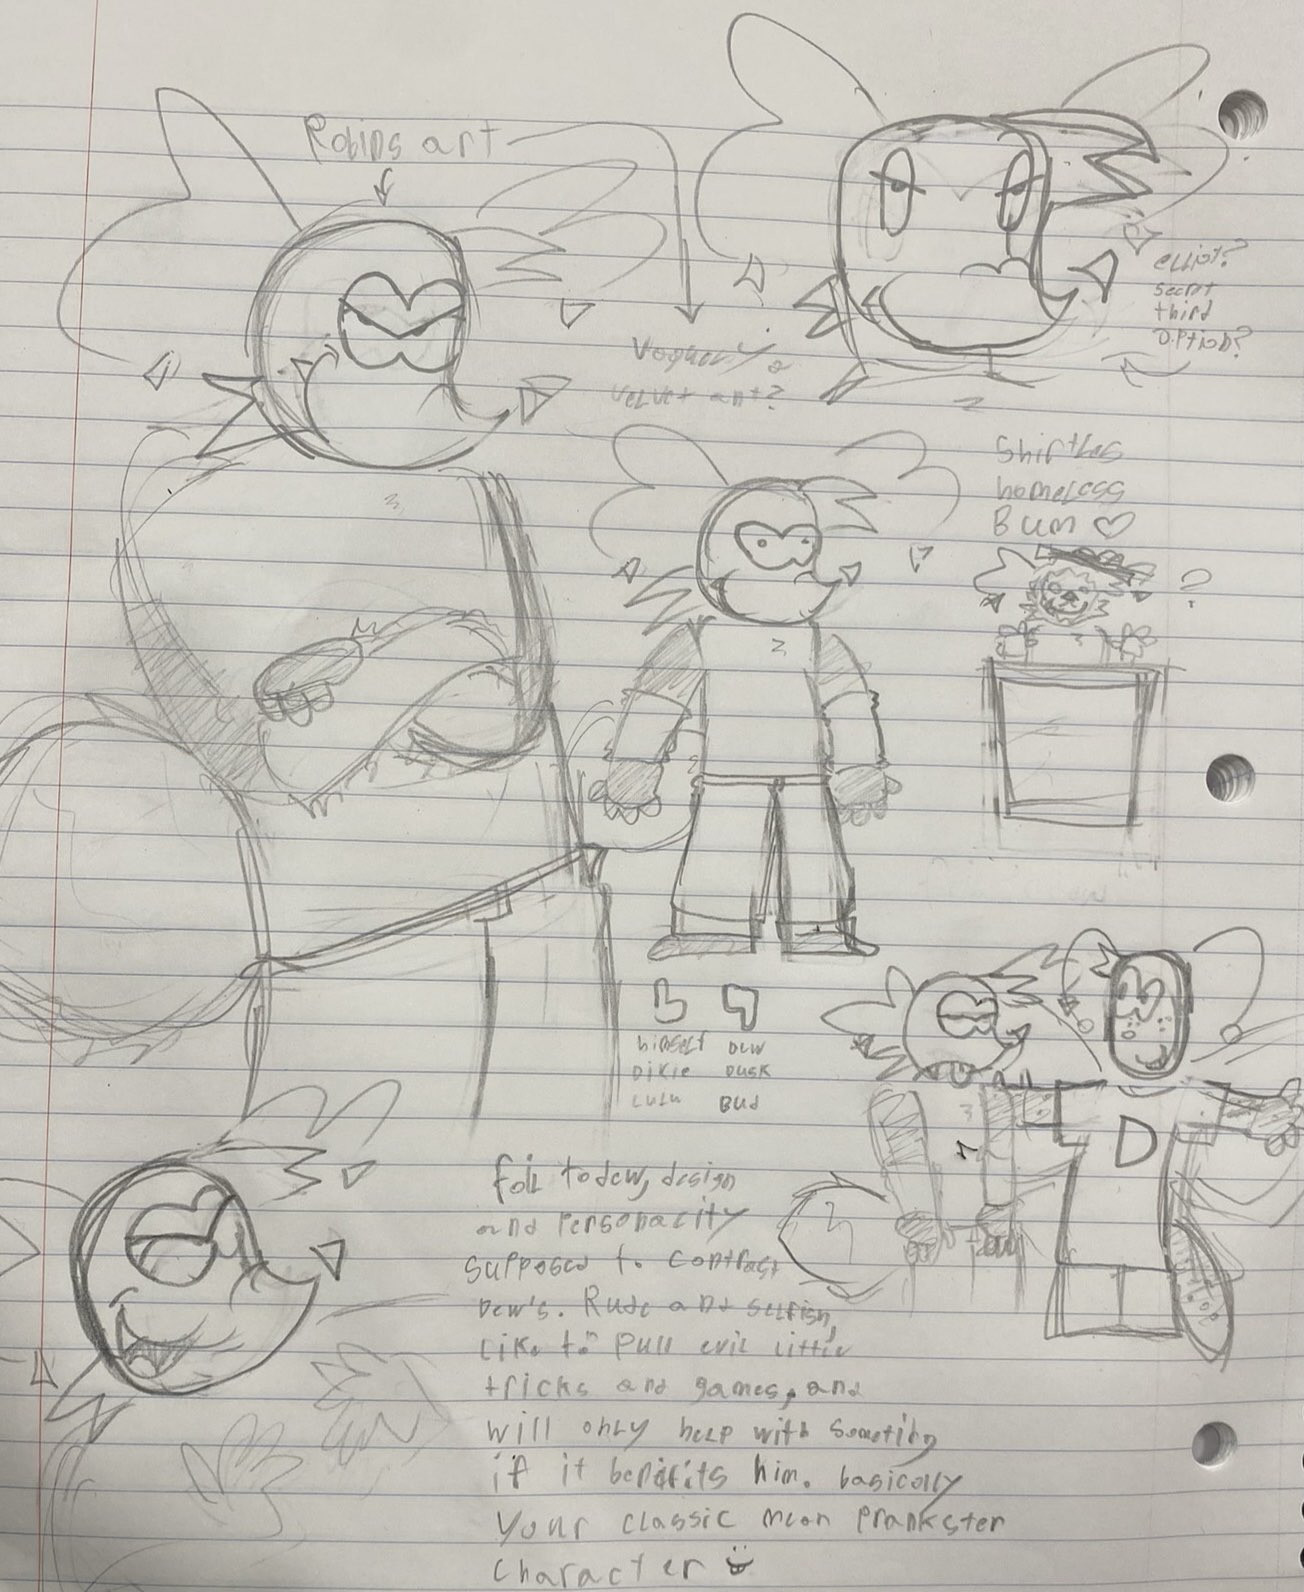 Robins art
elliot?
secret
third
option?
velvet ant?
Shirtles
homeless
Bum ♡
?
himself
Dikie
Lulu
Dew
Dusk
Bud
D
foil to dew, design
and personality
supposed to contrast
Dew's. Rude and selfish,
like to pull evil little
tricks and games, and
will only help with somethng
if it benifits him. basically
your classic mean prankster
character